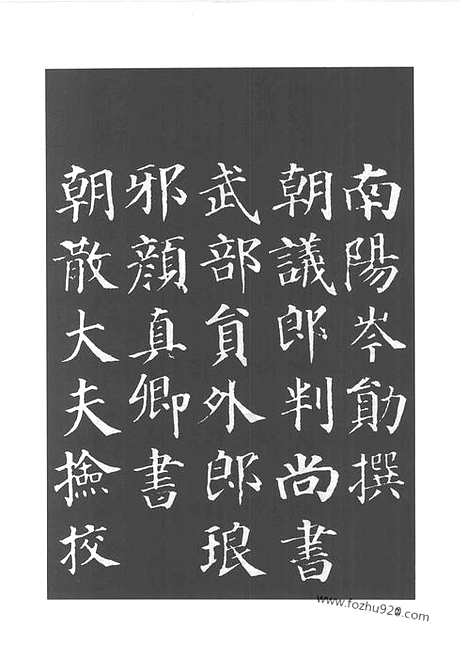 南陽岑勛撰
朝議郎判尚書
武部員外郎琅
邪顏真卿書
朝散大夫撿挍
www.fozhu920.com